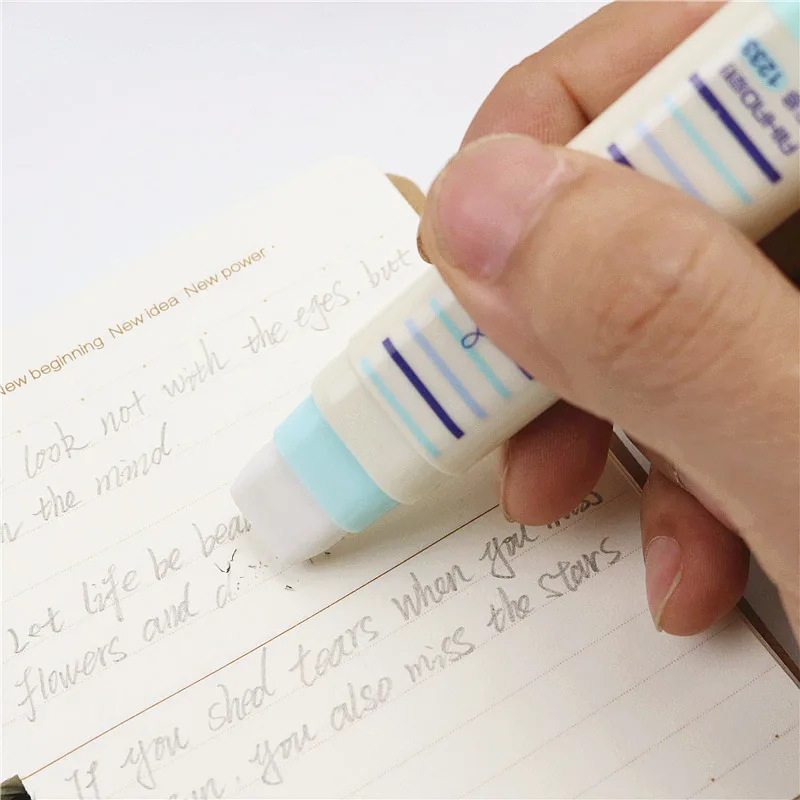 New beginning New idea New power
look not with the eyes, but
the mind
Let life be beau
flowers and d
If you shed tears when you miss
, you also miss the stars
1233